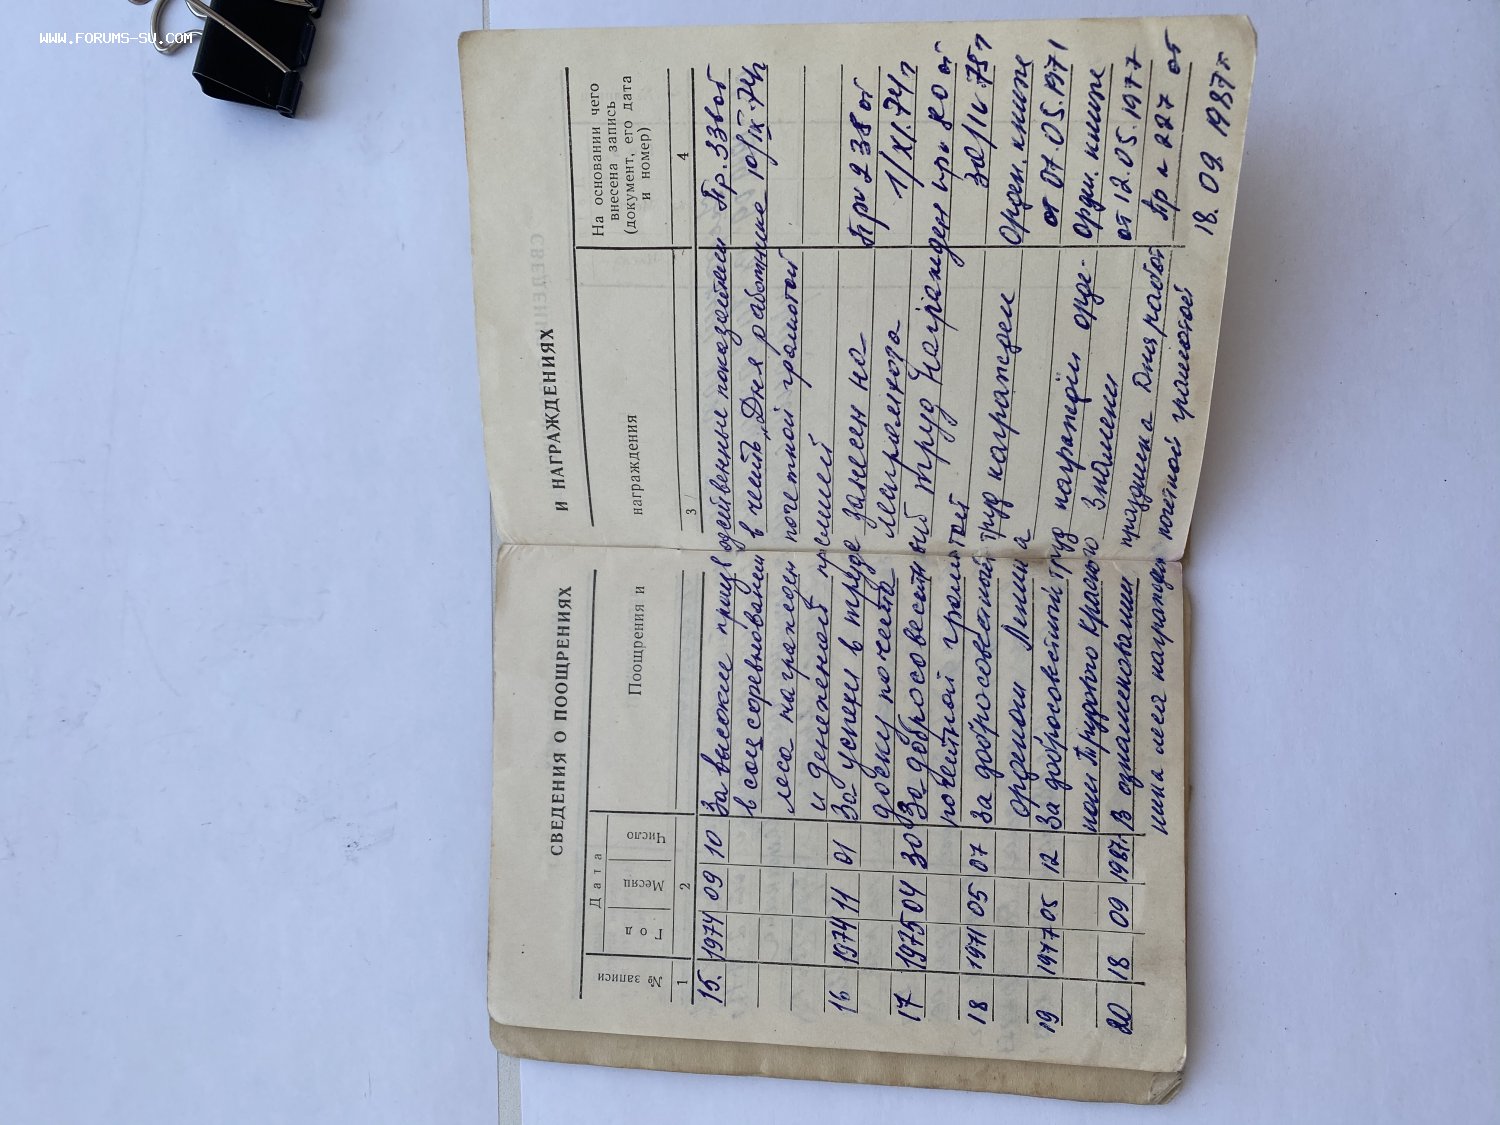 WWW.FORUMS-SU.COM
СВЕДЕНИЯ О ПООЩРЕНИЯХ
№ записи
Дата
Год
Месяц
Число
Поощрения и
1
2
И НАГРАЖДЕНИЯХ
награждения
На основании чего
внесена запись
(документ, его дата
и номер)
3
4
15. 1974 09 10 За высокие производственные показатели Пр. 336 от
в соцсоревновании в честь „Дня работника 10/IX-74г
леса награжден почетной грамотой
и денежной премией
16 1974 11 01 За успехи в труде занесен на Пр 238 от
доску почета 1/XI.74г
17 1975 04 30 За добросовестный труд Награжден пр. 80 от
почетной грамотой 30/IV-75г
18 1971 05 07 За добросовестный труд награжден Орден. книже
орденом Ленина от 07.05.1971
19 1977 05 12 За добросовестный труд награжден орде- Орден. книже
ном Трудового Красного Знамени от 12.05.1977
20 18 09 1987г. В ознаменовании праздника Дня работ Пр 227 от
ника леса награжден почетной грамотой 18.09.1987г.